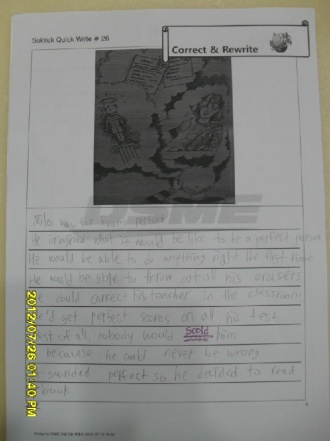 Suktuk Quick Write # 26
Correct & Rewrite
He imagined what it would be like to be a perfect person
He would be able to do anything right the first time
He would be able to throw out all his erasers
could correct his teacher in the classroom
'd get perfect scores on all his test
of all, nobody would scold him
because he could never be wrong
sounded perfect so he decided to read
2012/07/26 01:10 PM